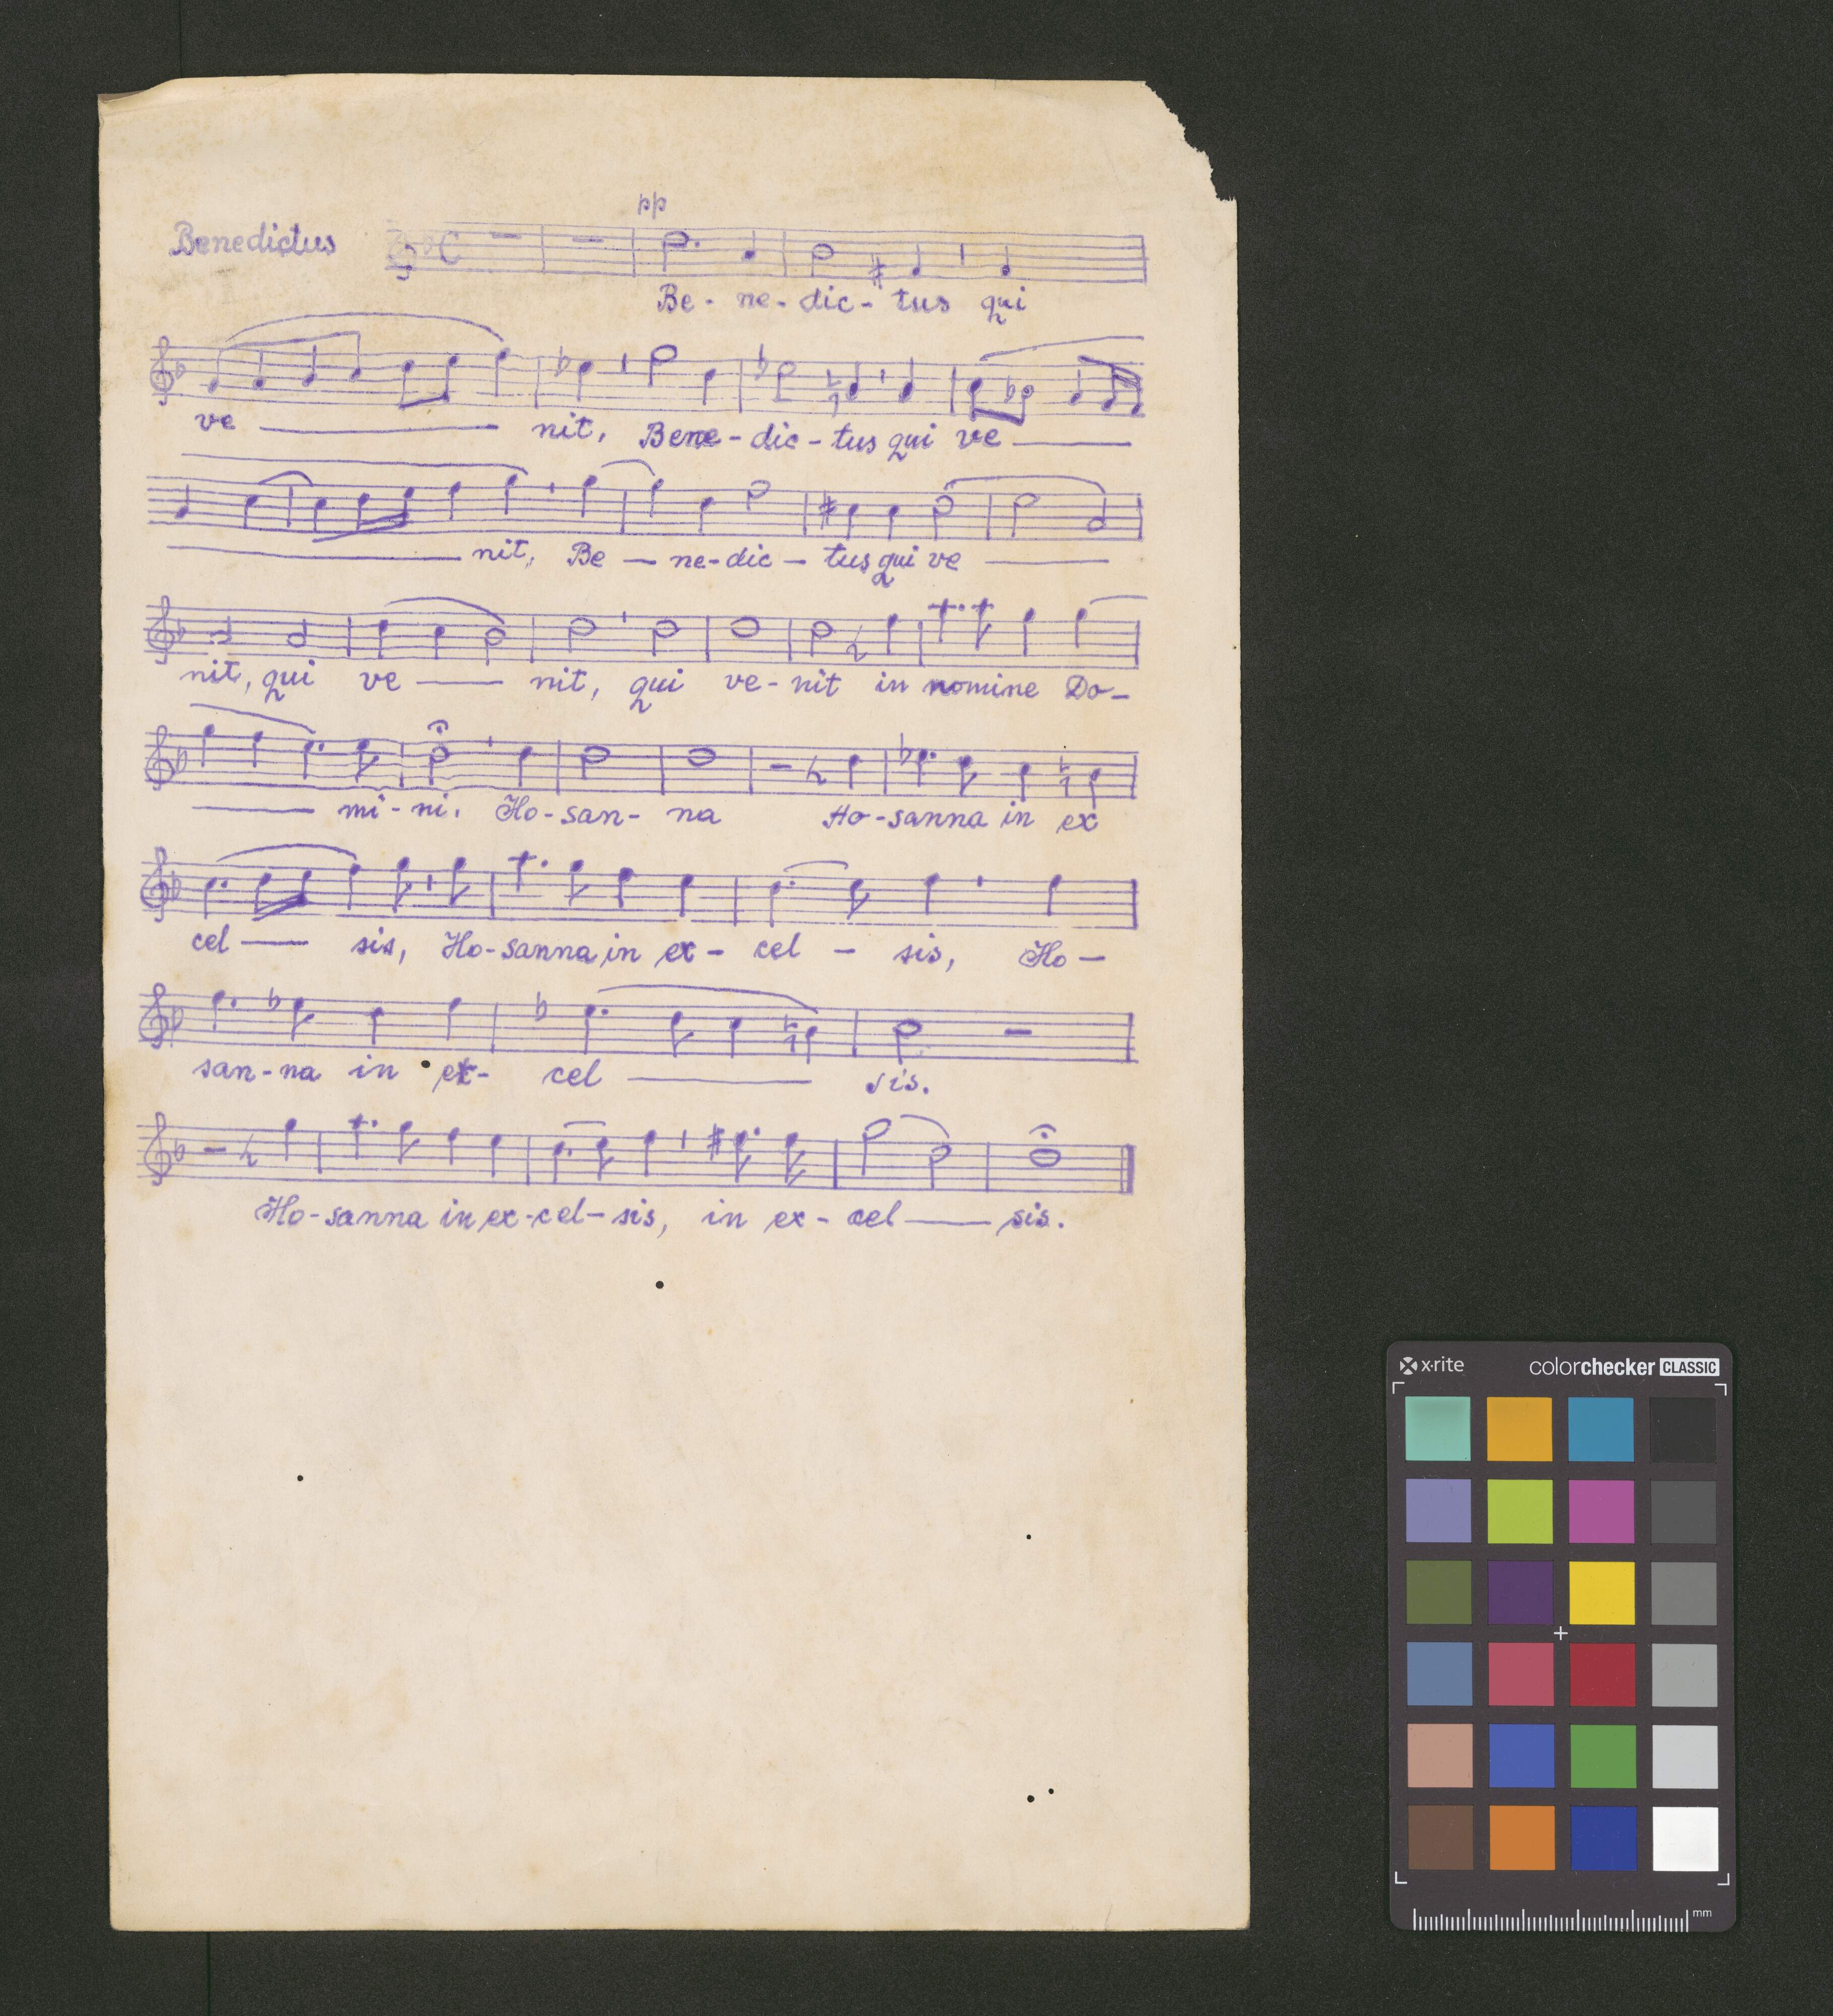 pp
Benedictus
Be - ne - dic - tus qui
ve — nit, Bene - dic - tus qui ve —
— nit, Be — ne - dic — tus qui ve —
nit, qui ve — nit, qui ve - nit in nomine Do -
— mi - ni. Ho - san - na Ho - sanna in ex
cel — sis, Ho - sanna in ex - cel - sis, Ho -
san - na in ex - cel — sis.
Ho - sanna in ex - cel - sis, in ex - cel — sis.
x·rite colorchecker CLASSIC
mm